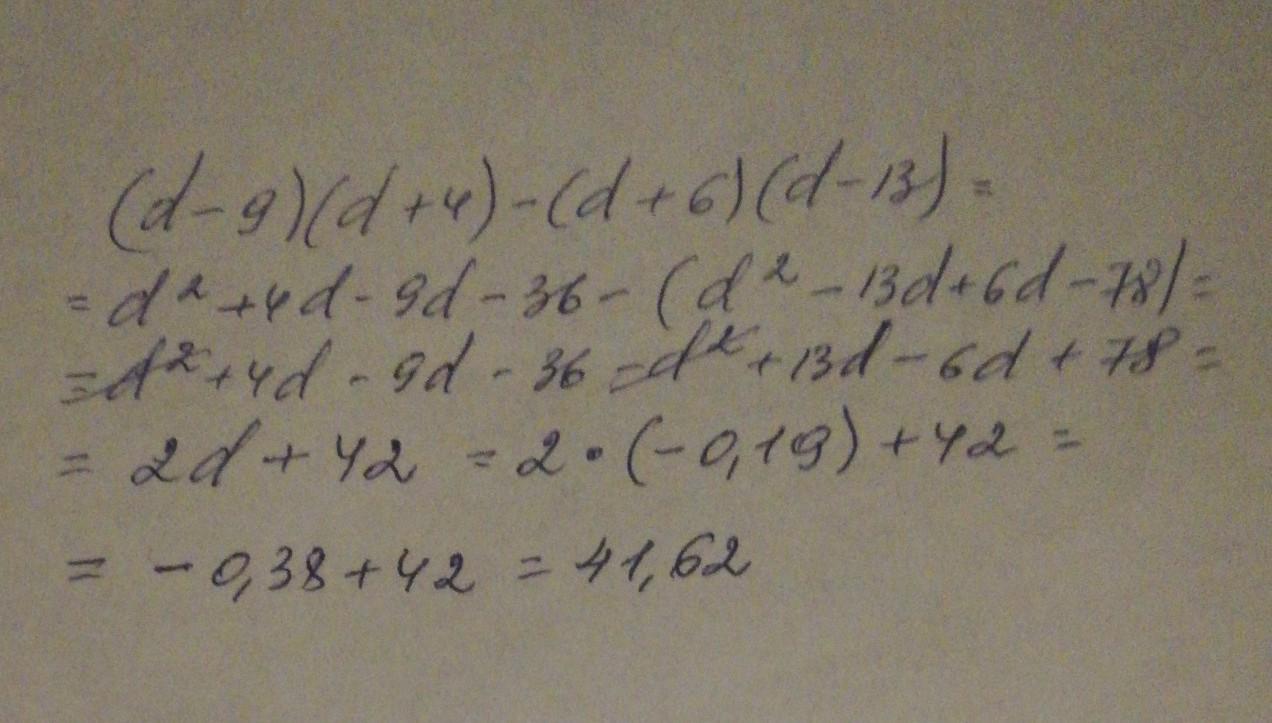 (d-9)(d+4)-(d+6)(d-13)=
=d²+4d-9d-36-(d²-13d+6d-78)=
=d²+4d-9d-36-d²+13d-6d+78=
=2d+42=2·(-0,19)+42=
=-0,38+42=41,62